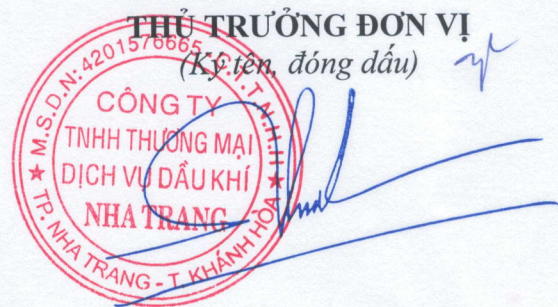 THỦ TRƯỞNG ĐƠN VỊ
(Ký tên, đóng dấu)
M.S.D.N: 4201576665 - C.T.T.N.H.H
CÔNG TY
TNHH THƯƠNG MẠI
DỊCH VỤ DẦU KHÍ
NHA TRANG
TP. NHA TRANG - T. KHÁNH HÒA